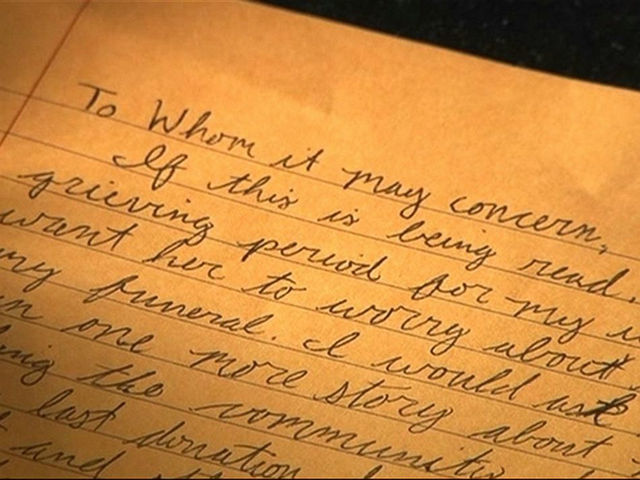 To Whom it may concern,
If this is being read.
grieving period for my
want her to worry about
my funeral. I would ask
one more story about
the community
last donation
and